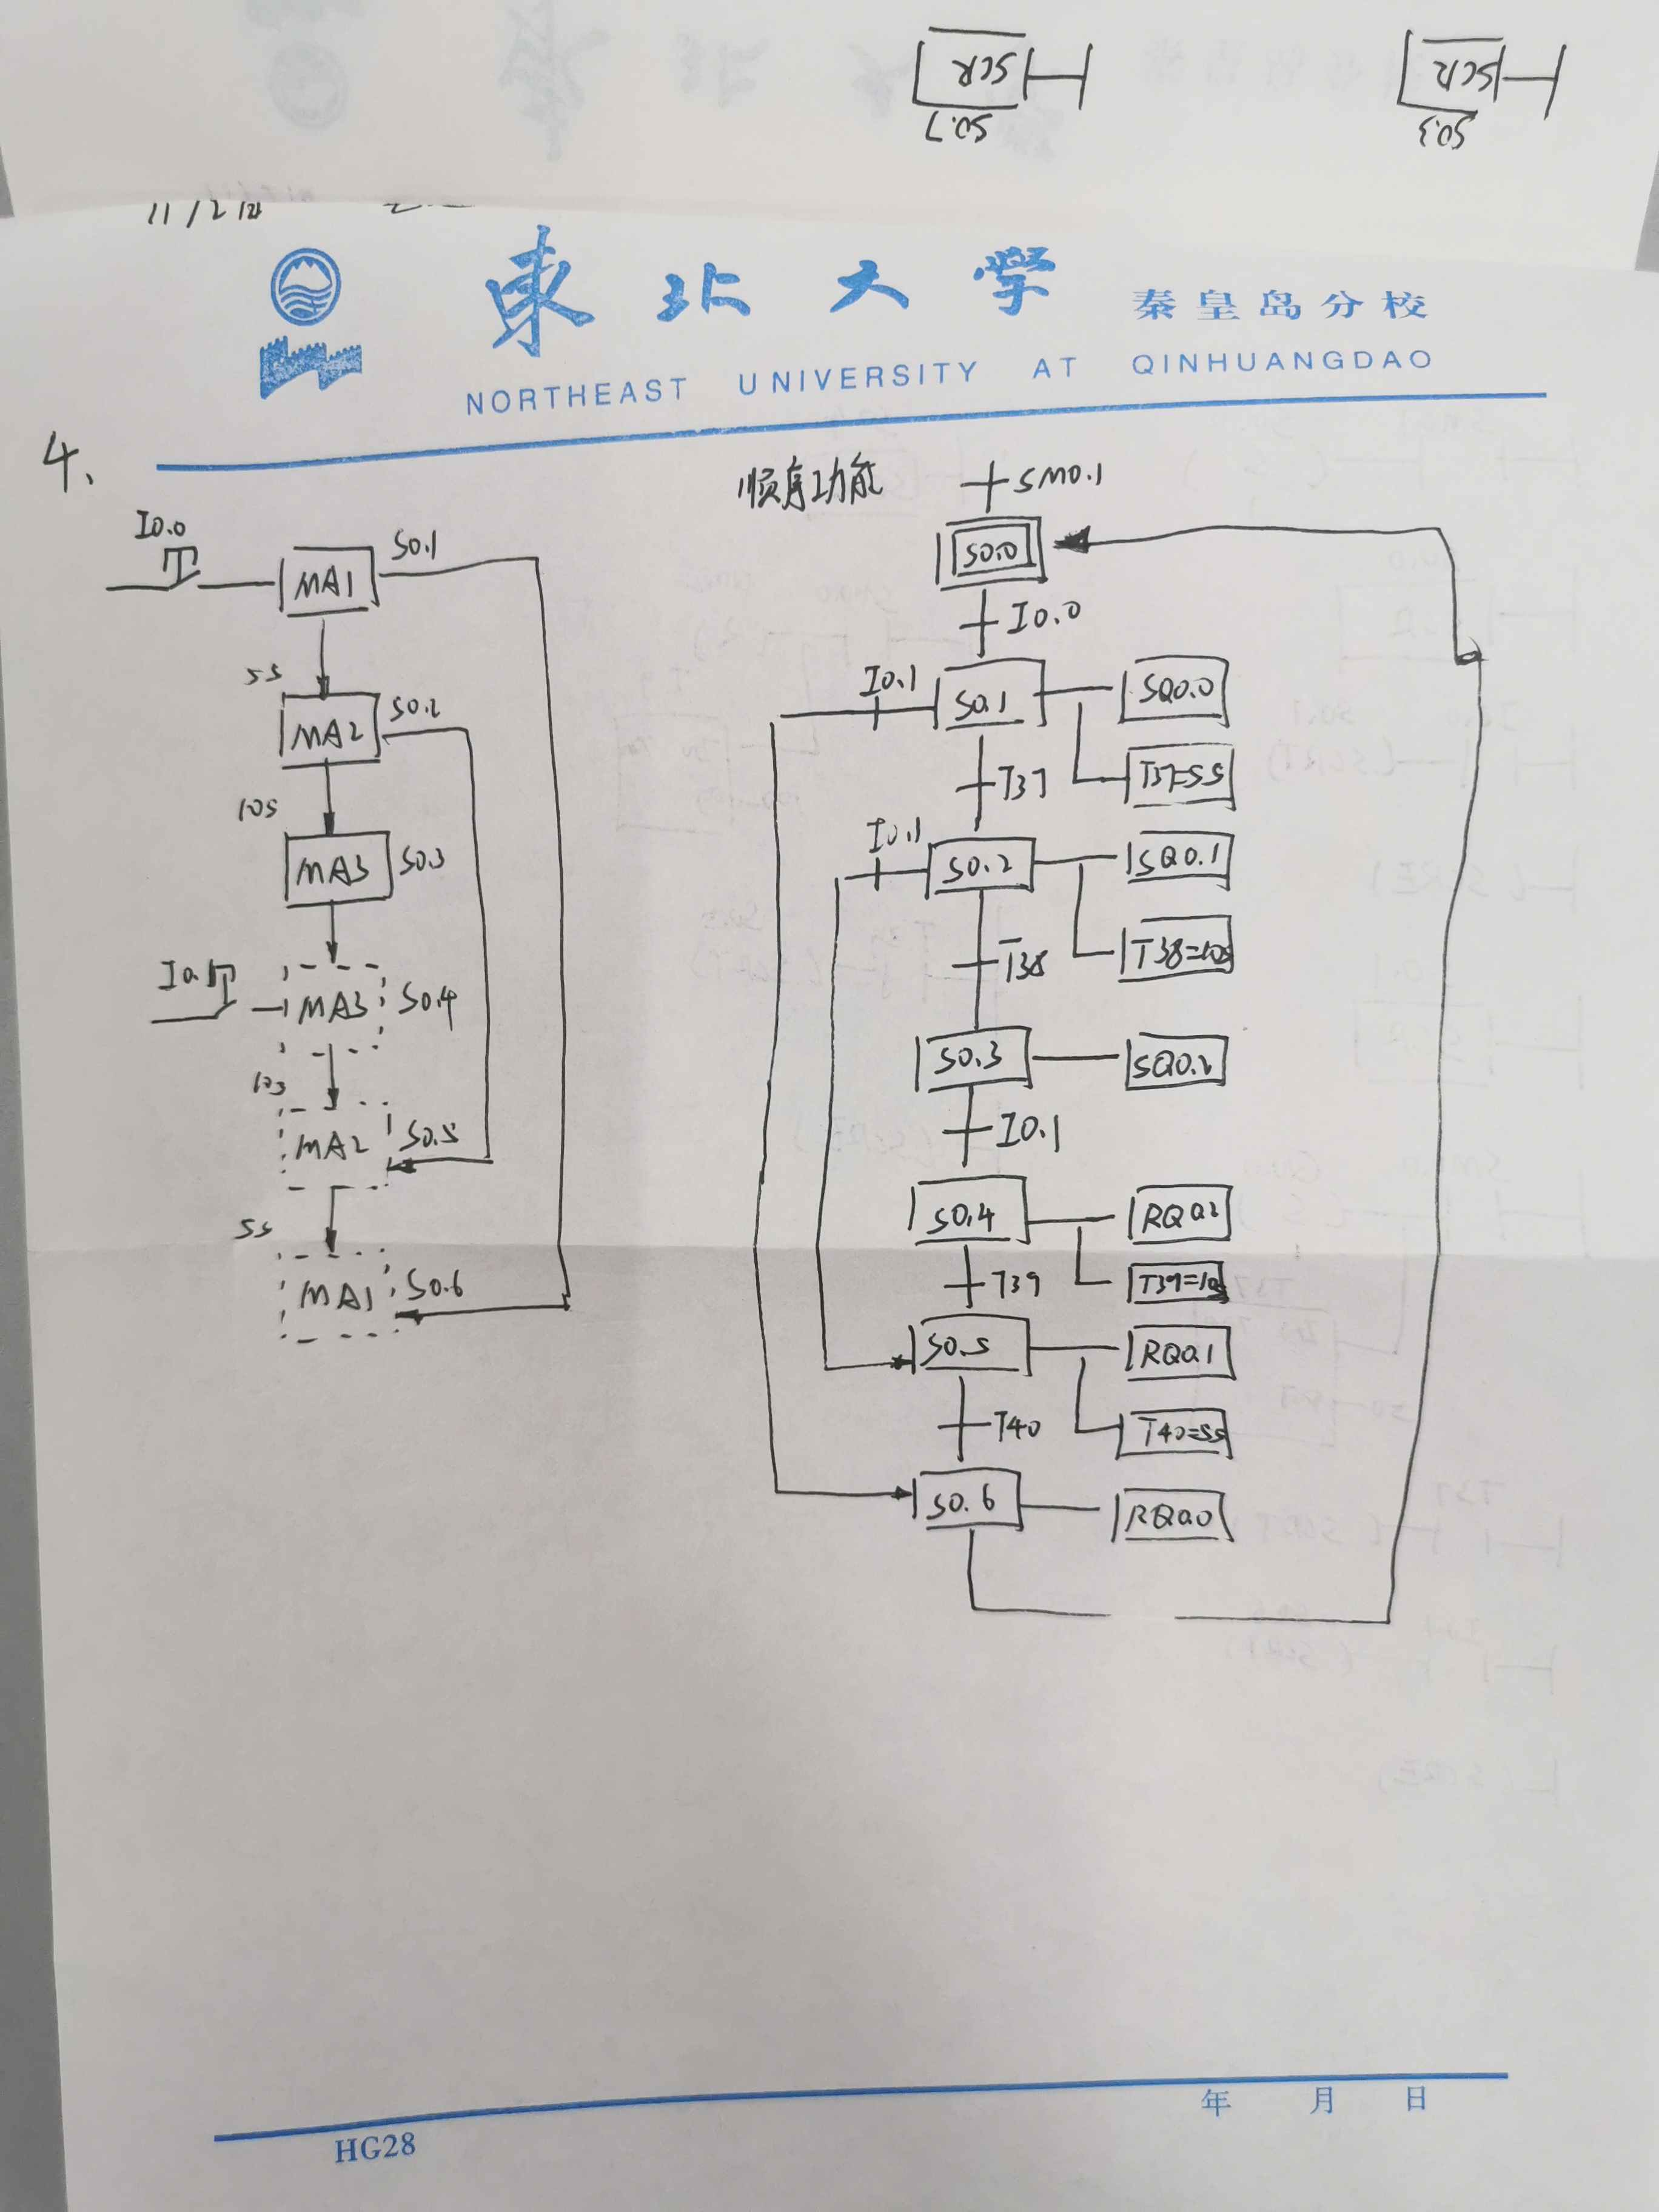 SCR SCR
S0.7 S0.3
東北大学 秦皇岛分校
NORTHEAST UNIVERSITY AT QINHUANGDAO
4、
I0.0
MA1 S0.1
5S
MA2 S0.2
10S
MA3 S0.3
MA3 S0.4
10S
MA2 S0.5
5S
MA1 S0.6
顺序功能
SM0.1
S0.0
I0.0
I0.1 S0.1 SQ0.0
T37 T37=5S
I0.1 S0.2 SQ0.1
T38 T38=10S
S0.3 SQ0.2
I0.1
S0.4 RQ0.2
T39 T39=10S
S0.5 RQ0.1
T40 T40=5S
S0.6 RQ0.0
年 月 日
HG28